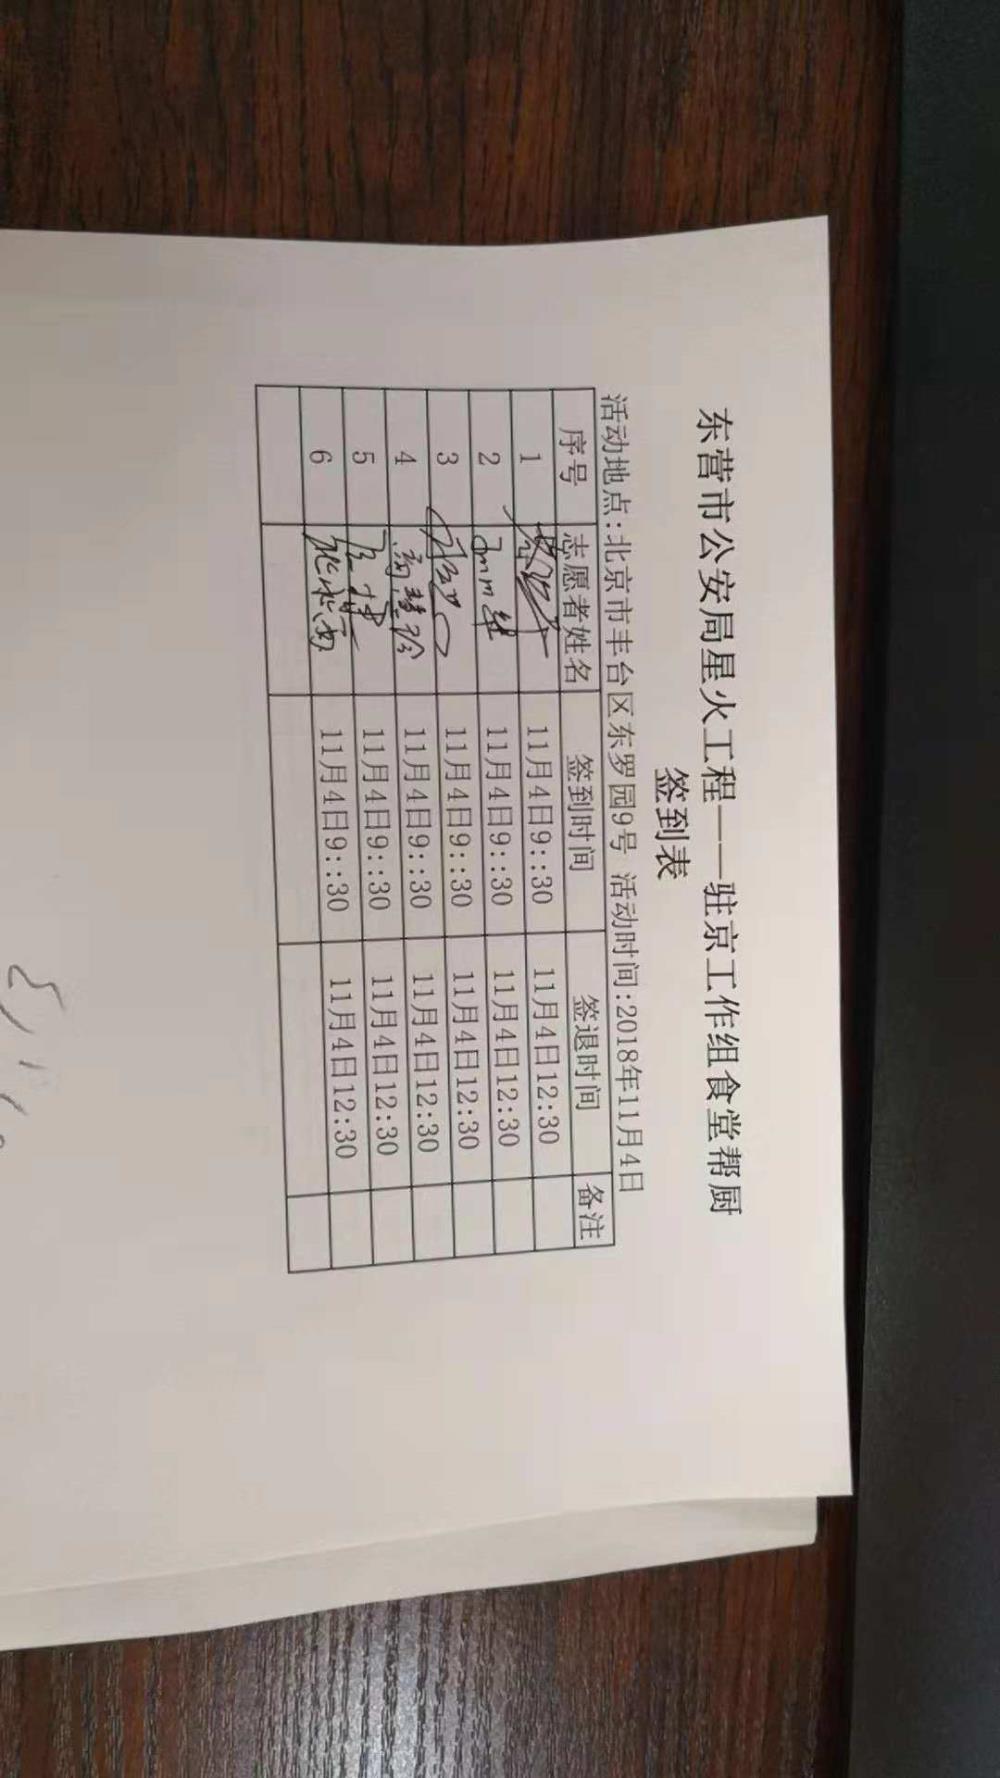 东营市公安局星火工程——驻京工作组食堂帮厨
签到表
活动地点:北京市丰台区东罗园9号 活动时间:2018年11月4日
序号 志愿者姓名 签到时间 签退时间 备注
1 11月4日9::30 11月4日12:30
2 11月4日9::30 11月4日12:30
3 11月4日9::30 11月4日12:30
4 11月4日9::30 11月4日12:30
5 11月4日9::30 11月4日12:30
6 11月4日9::30 11月4日12:30